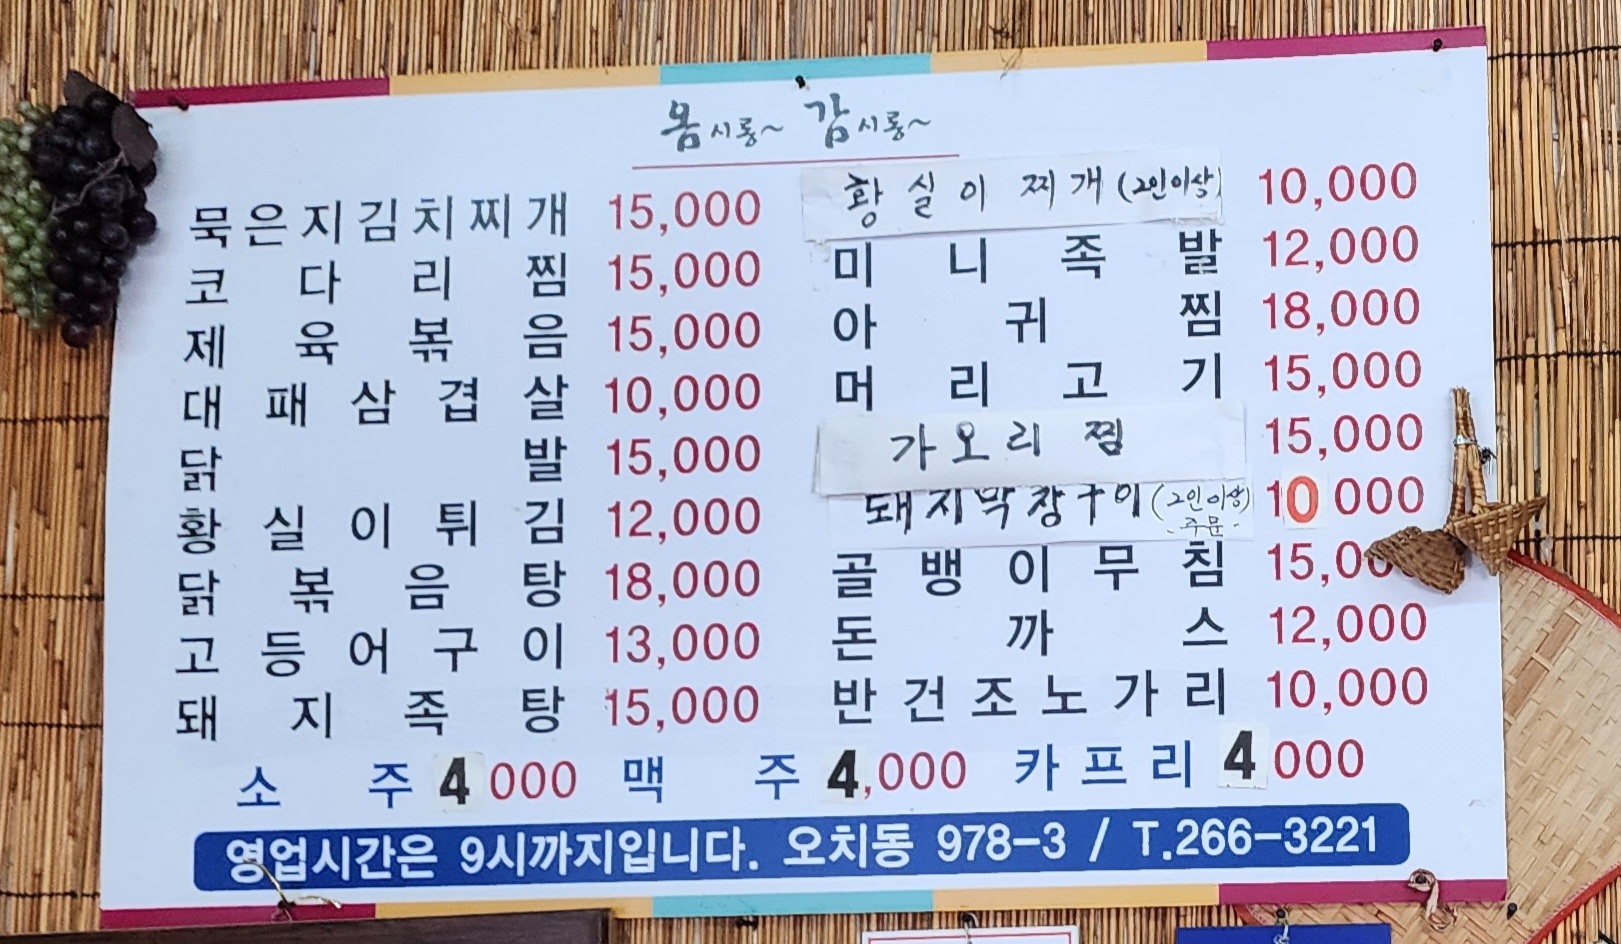 옴시롱~ 감시롱~
묵은지김치찌개 15,000
코다리찜 15,000
제육볶음 15,000
대패삼겹살 10,000
닭발 15,000
황실이튀김 12,000
닭볶음탕 18,000
고등어구이 13,000
돼지족탕 15,000
황실이찌개(2인이상) 10,000
미니족발 12,000
아귀찜 18,000
머리고기 15,000
가오리찜 15,000
돼지막창구이(2인이상) 10 000
-주문-
골뱅이무침 15,00
돈까스 12,000
반건조노가리 10,000
소주 4 000 맥주 4,000 카프리 4 000
영업시간은 9시까지입니다. 오치동 978-3 / T.266-3221